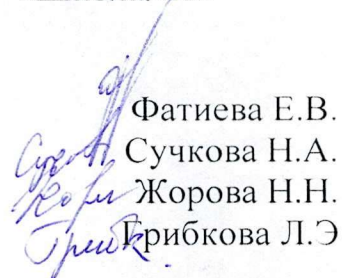 Фатиева Е.В.
Сучкова Н.А.
Жорова Н.Н.
Грибкова Л.Э